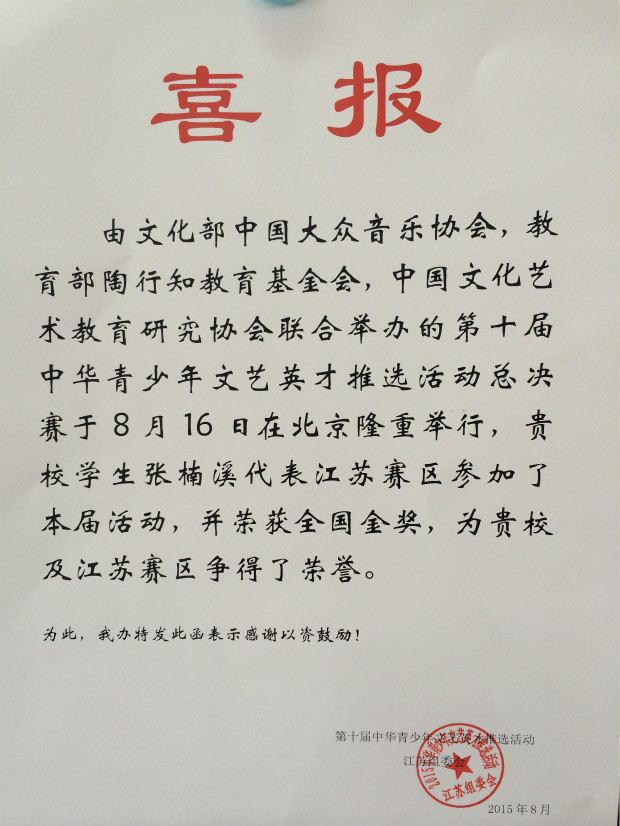 喜报
由文化部中国大众音乐协会，教
育部陶行知教育基金会，中国文化艺
术教育研究协会联合举办的第十届
中华青少年文艺英才推选活动总决
赛于8月16日在北京隆重举行，贵
校学生张楠溪代表江苏赛区参加了
本届活动，并荣获全国金奖，为贵校
及江苏赛区争得了荣誉。
为此，我办特发此函表示感谢以资鼓励！
第十届中华青少年文艺英才推选活动
江苏组委会
江苏组委会
2015年8月